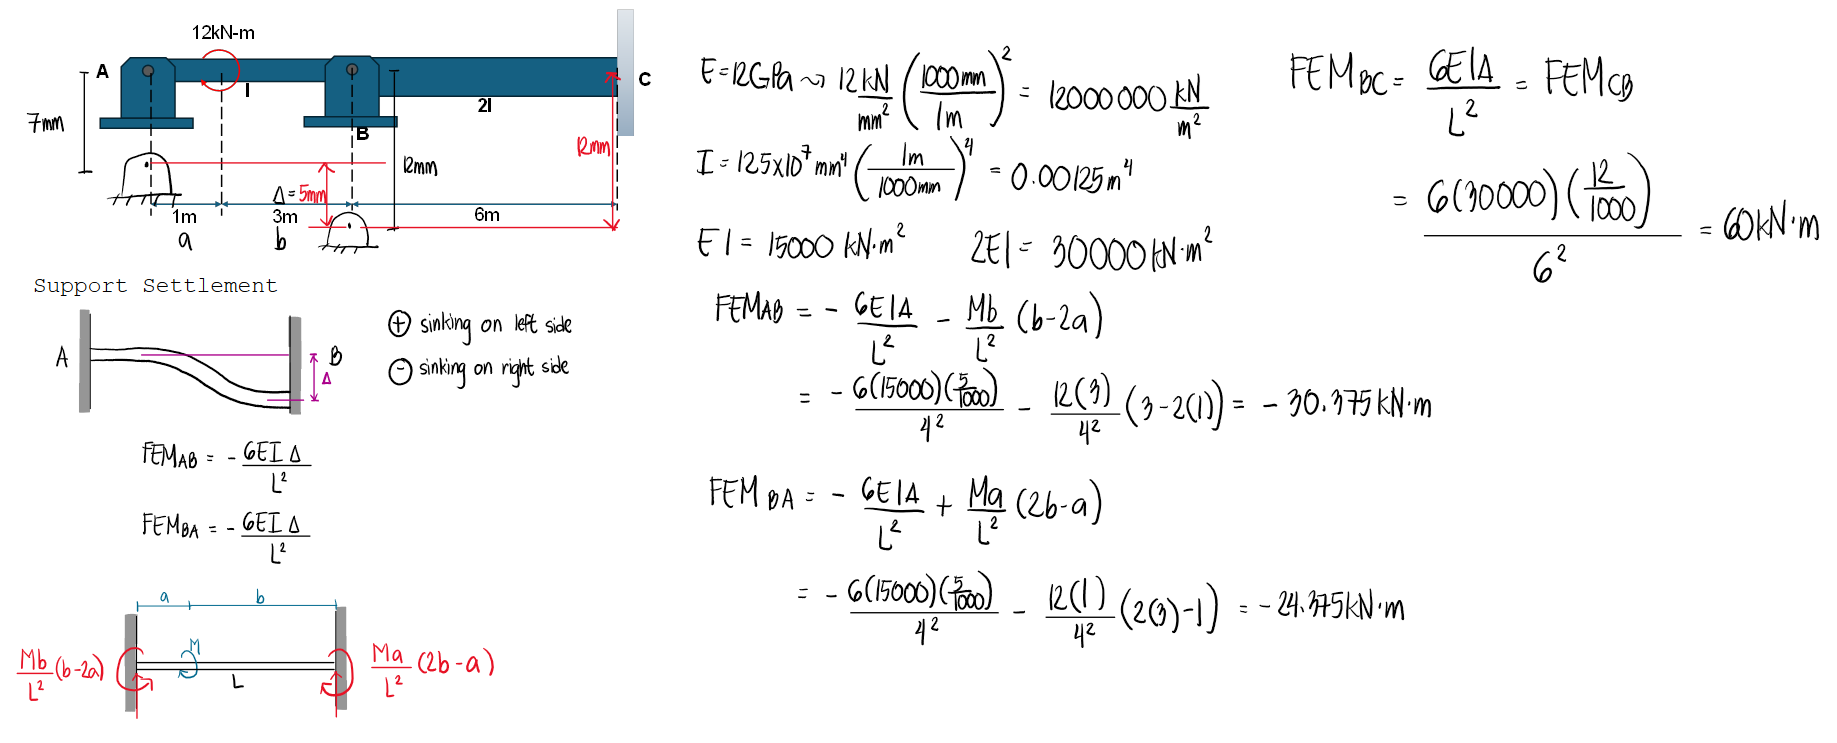 12kN-m
A
I
C
2I
B
7mm
12mm
12mm
Δ = 5mm
1m
3m
6m
a
b
Support Settlement
A
B
Δ
⊕ sinking on left side
⊖ sinking on right side
FEM_AB = - 6EIΔ / L²
FEM_BA = - 6EIΔ / L²
a
b
M
L
Mb/L² (b-2a)
Ma/L² (2b-a)
E = 12GPa ⤳ 12 kN/mm² (1000mm / 1m)² = 12000000 kN/m²
I = 125x10⁷ mm⁴ (1m / 1000mm)⁴ = 0.00125m⁴
EI = 15000 kN·m²
2EI = 30000 kN·m²
FEM_AB = - 6EIΔ / L² - Mb/L² (b-2a)
= - 6(15000)(5/1000) / 4² - 12(3) / 4² (3-2(1)) = - 30.375 kN·m
FEM_BA = - 6EIΔ / L² + Ma/L² (2b-a)
= - 6(15000)(5/1000) / 4² - 12(1) / 4² (2(3)-1) = -24.375 kN·m
FEM_BC = 6EIΔ / L² = FEM_CB
= 6(30000)(12/1000) / 6² = 60kN·m